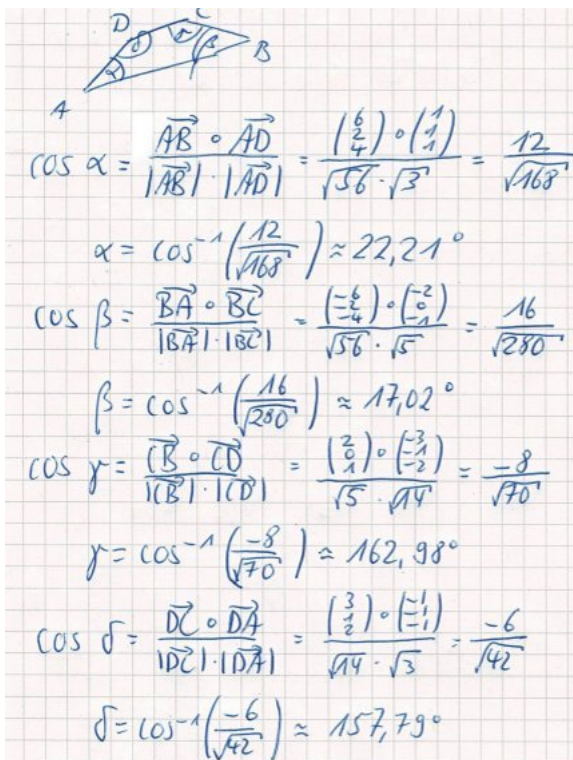 D C
δ γ β B
α
A
cos α = AB→ ∘ AD→ / |AB→| · |AD→| = (6 2 4) ∘ (1 1 1) / √56 · √3 = 12 / √168
α = cos⁻¹(12 / √168) ≈ 22,21°
cos β = BA→ ∘ BC→ / |BA→| · |BC→| = (-6 -2 -4) ∘ (-2 0 -1) / √56 · √5 = 16 / √280
β = cos⁻¹(16 / √280) ≈ 17,02°
cos γ = CB→ ∘ CD→ / |CB→| · |CD→| = (2 0 1) ∘ (-3 -1 -2) / √5 · √14 = -8 / √70
γ = cos⁻¹(-8 / √70) ≈ 162,98°
cos δ = DC→ ∘ DA→ / |DC→| · |DA→| = (3 1 2) ∘ (-1 -1 -1) / √14 · √3 = -6 / √42
δ = cos⁻¹(-6 / √42) ≈ 157,79°